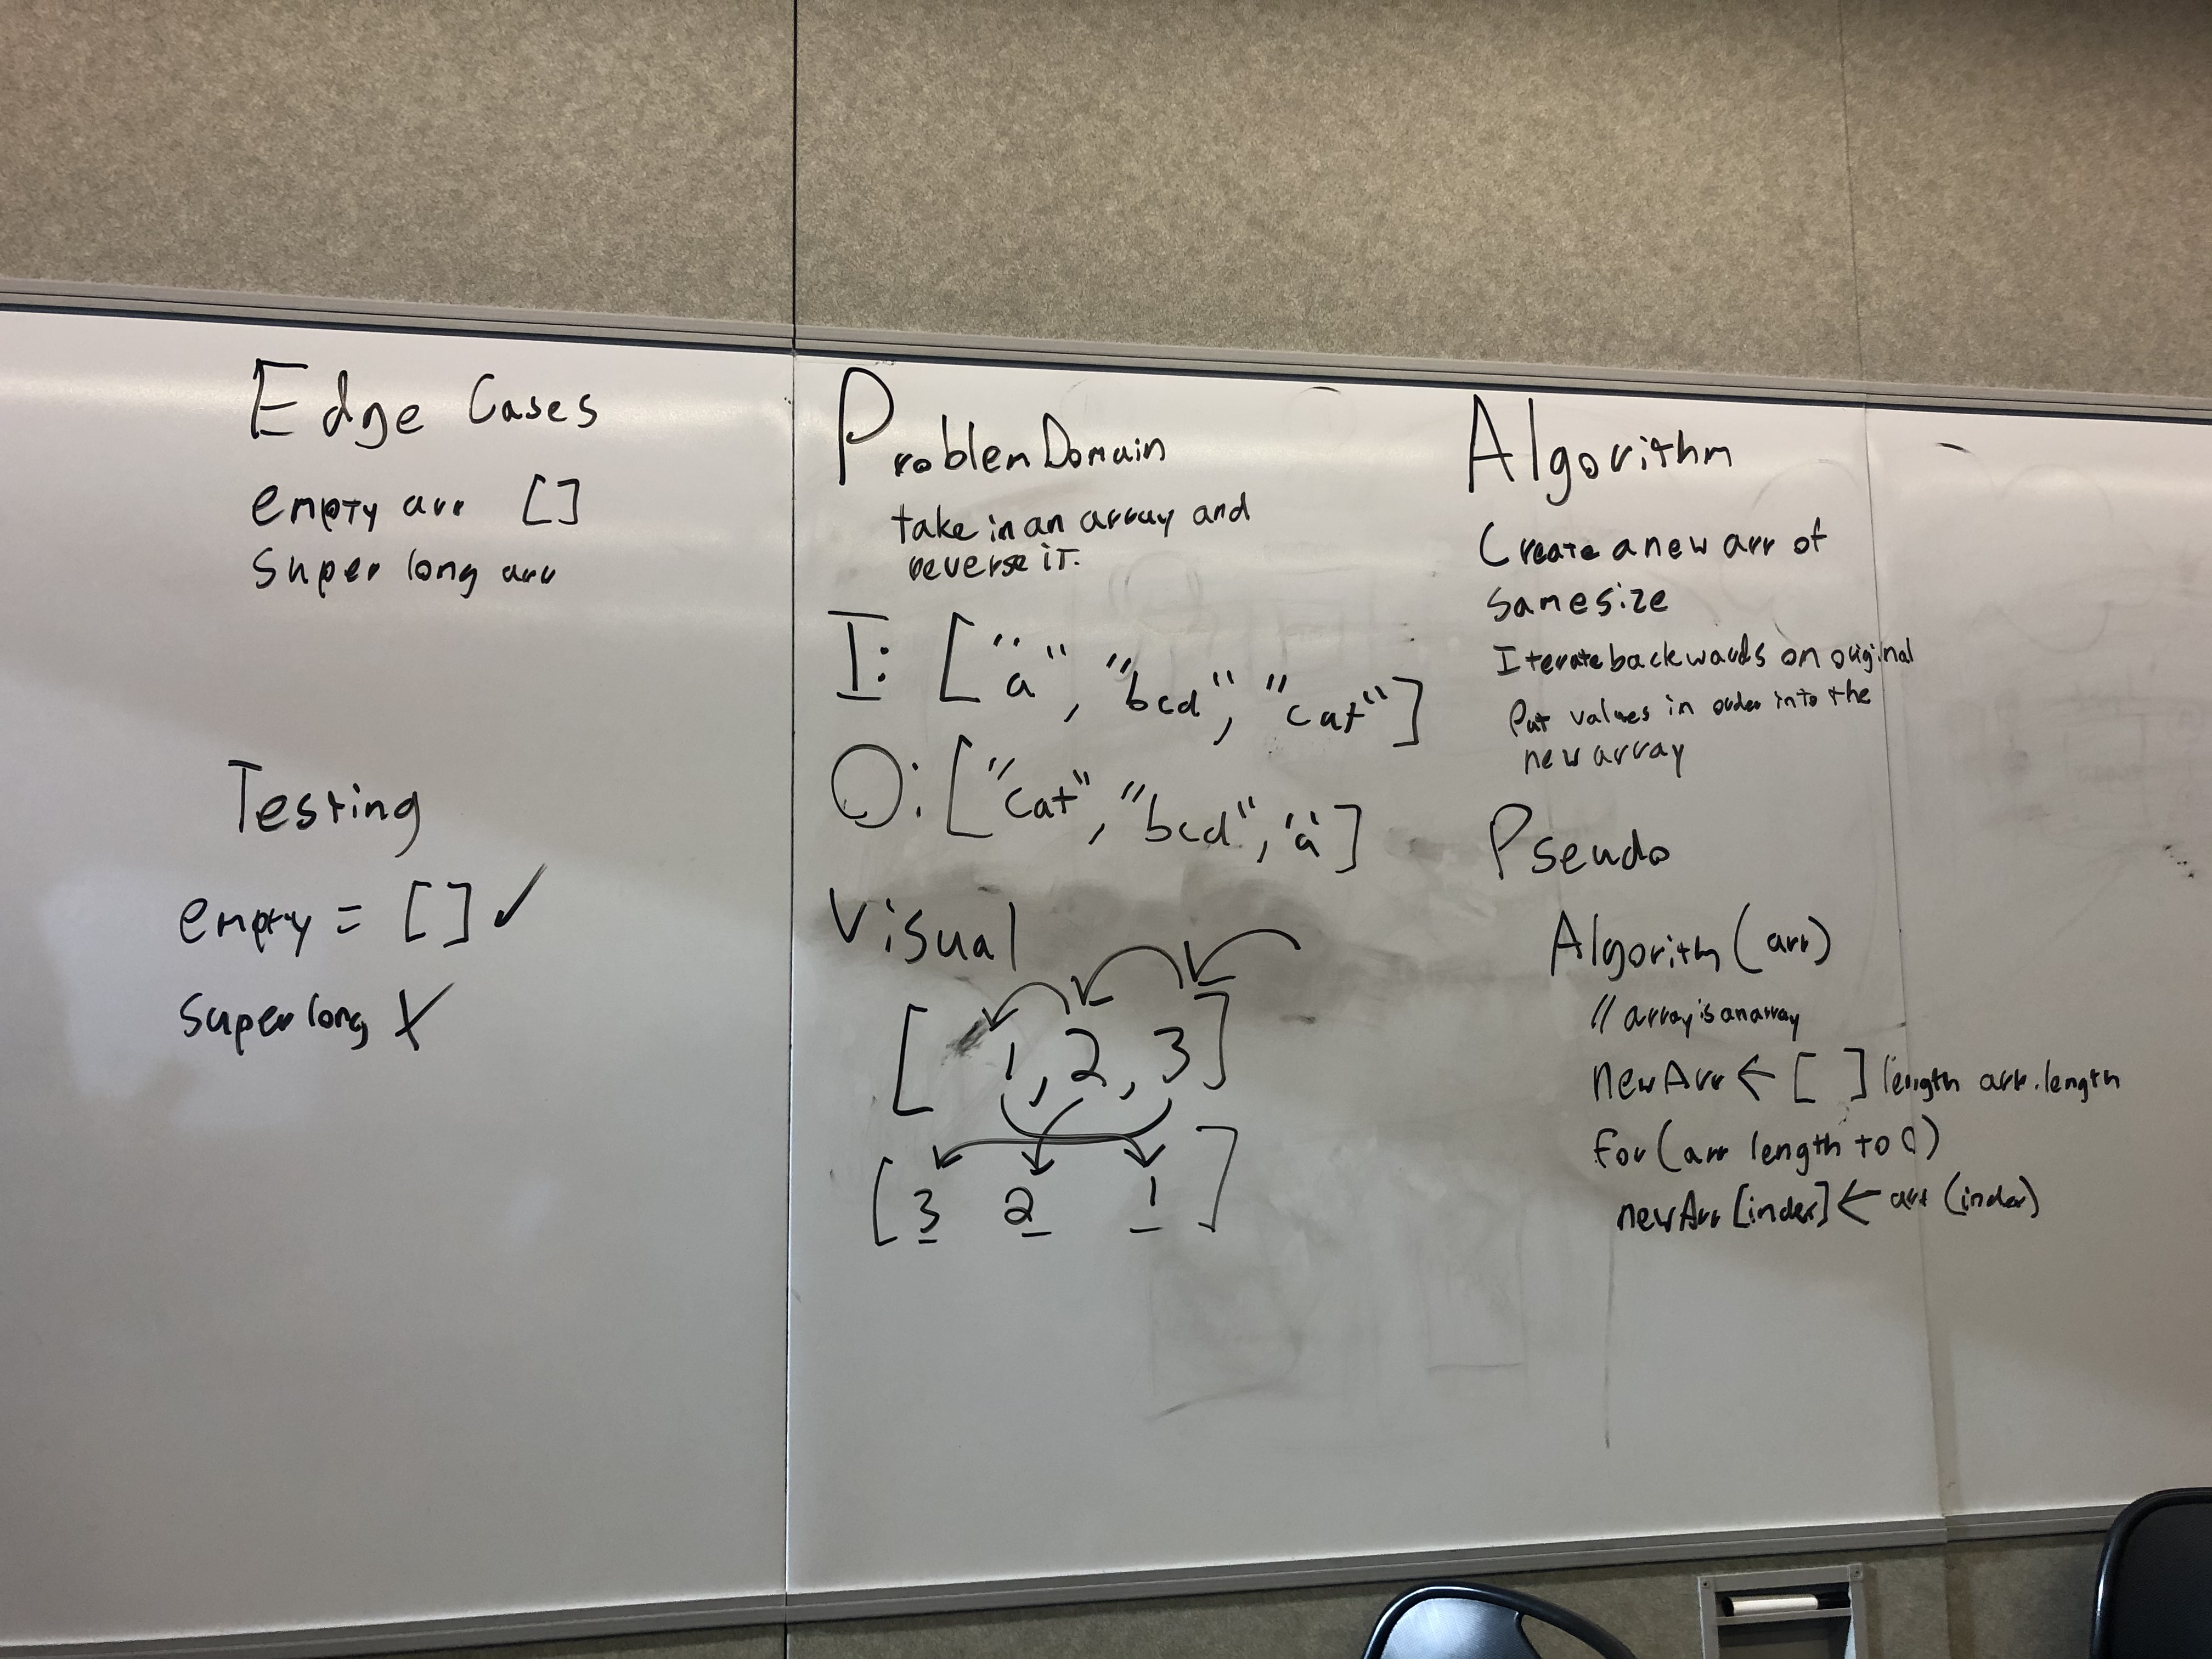 Edge Cases
empty arr []
Super long arr
Testing
empty = [] ✓
Super long X
Problem Domain
take in an array and
reverse it.
I: ["a", "bcd", "cat"]
O: ["cat", "bcd", "a"]
Visual
[ 1, 2, 3 ]
[ 3 2 1 ]
Algorithm
Create a new arr of
same size
Iterate backwards on original
Put values in order into the
new array
Pseudo
Algorithm (arr)
// array is an array
newArr ← [ ] length arr.length
for (arr length to 0)
newArr [index] ← arr (index)